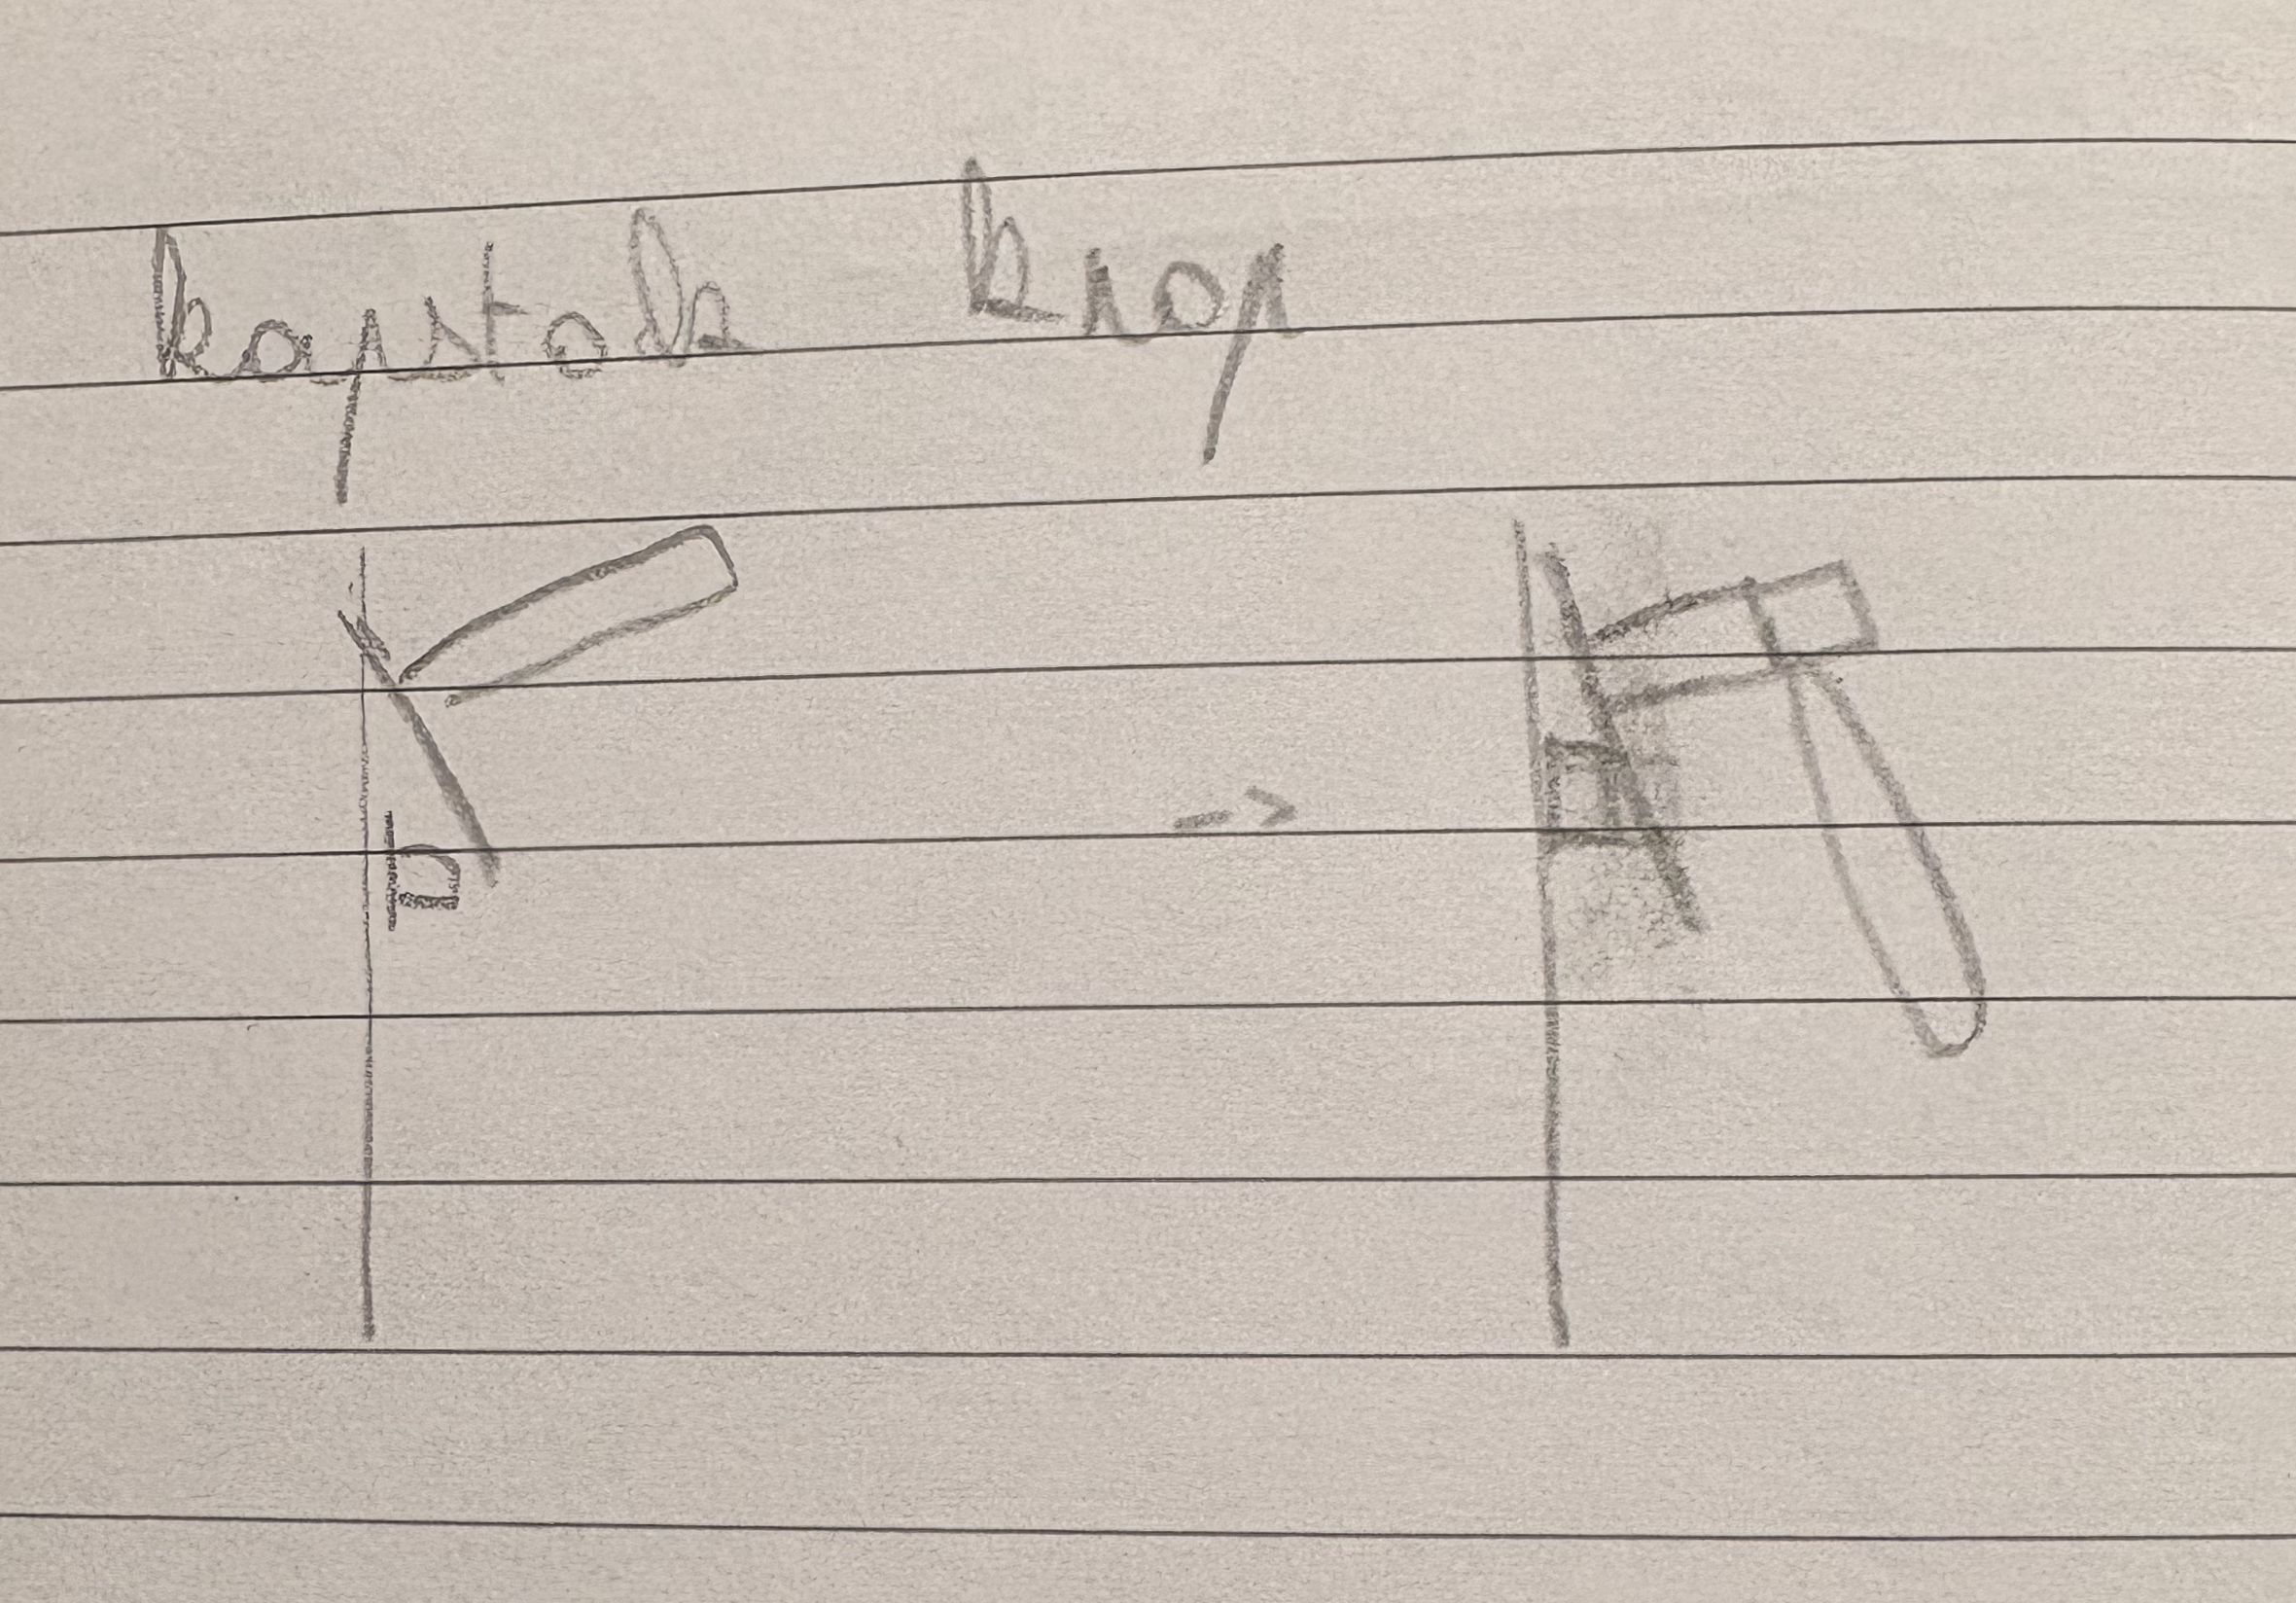 kapstok knop